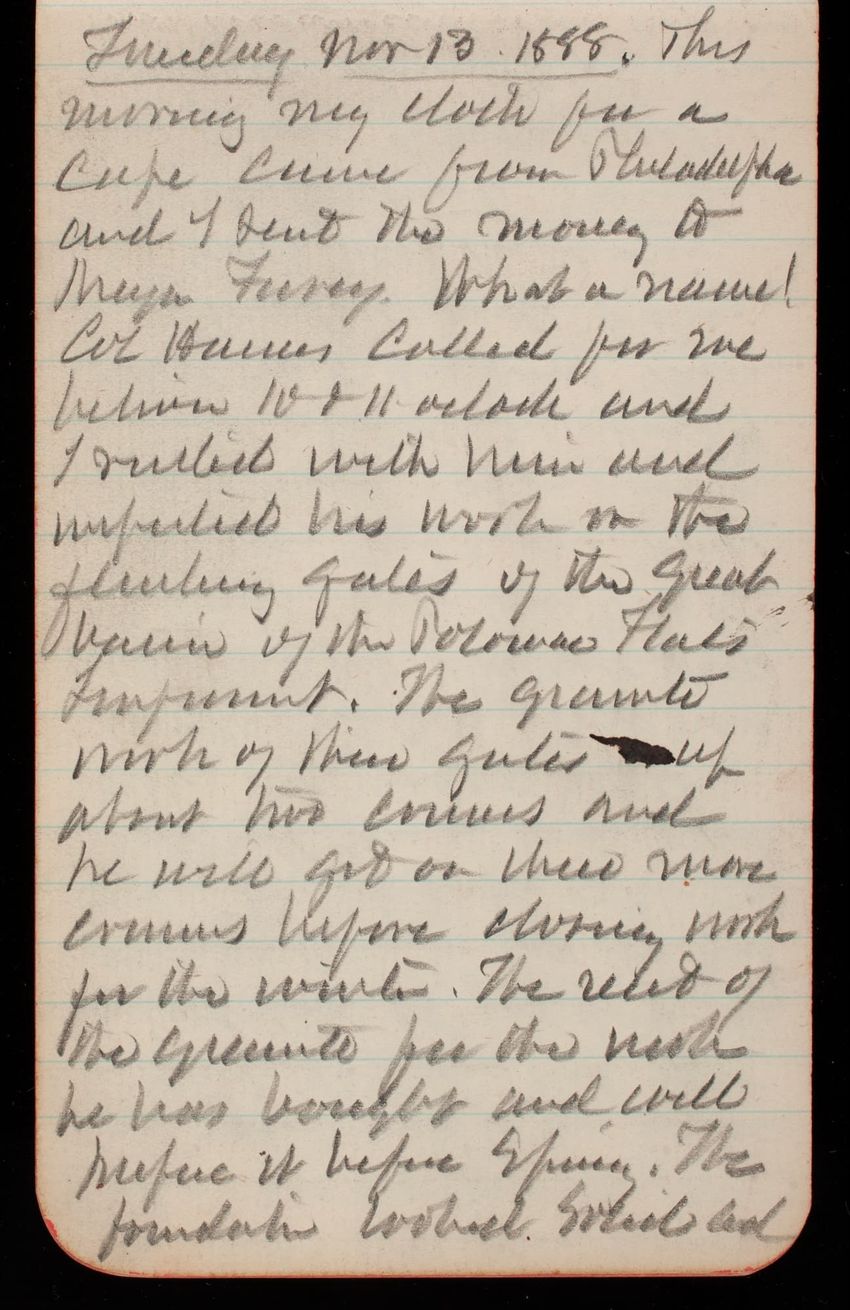 Tuesday Nov 13 1888. This
morning my cloth for a
Cape came from Philadelpha
and I sent the money to
Furey. What a name!
Col Haines Called for me
between 10 & 11 oclock and
I visited with him and
inspected his work on the
flushing gates of the great
basin of the Potomac Flats
Improvmnt. The granite
work of these gates up
about two courses and
he will get on three more
courses before closing work
for the winter. The rest of
the granite for the work
he has bought and will
prepare it before Spring. The
foundation looked Solid and